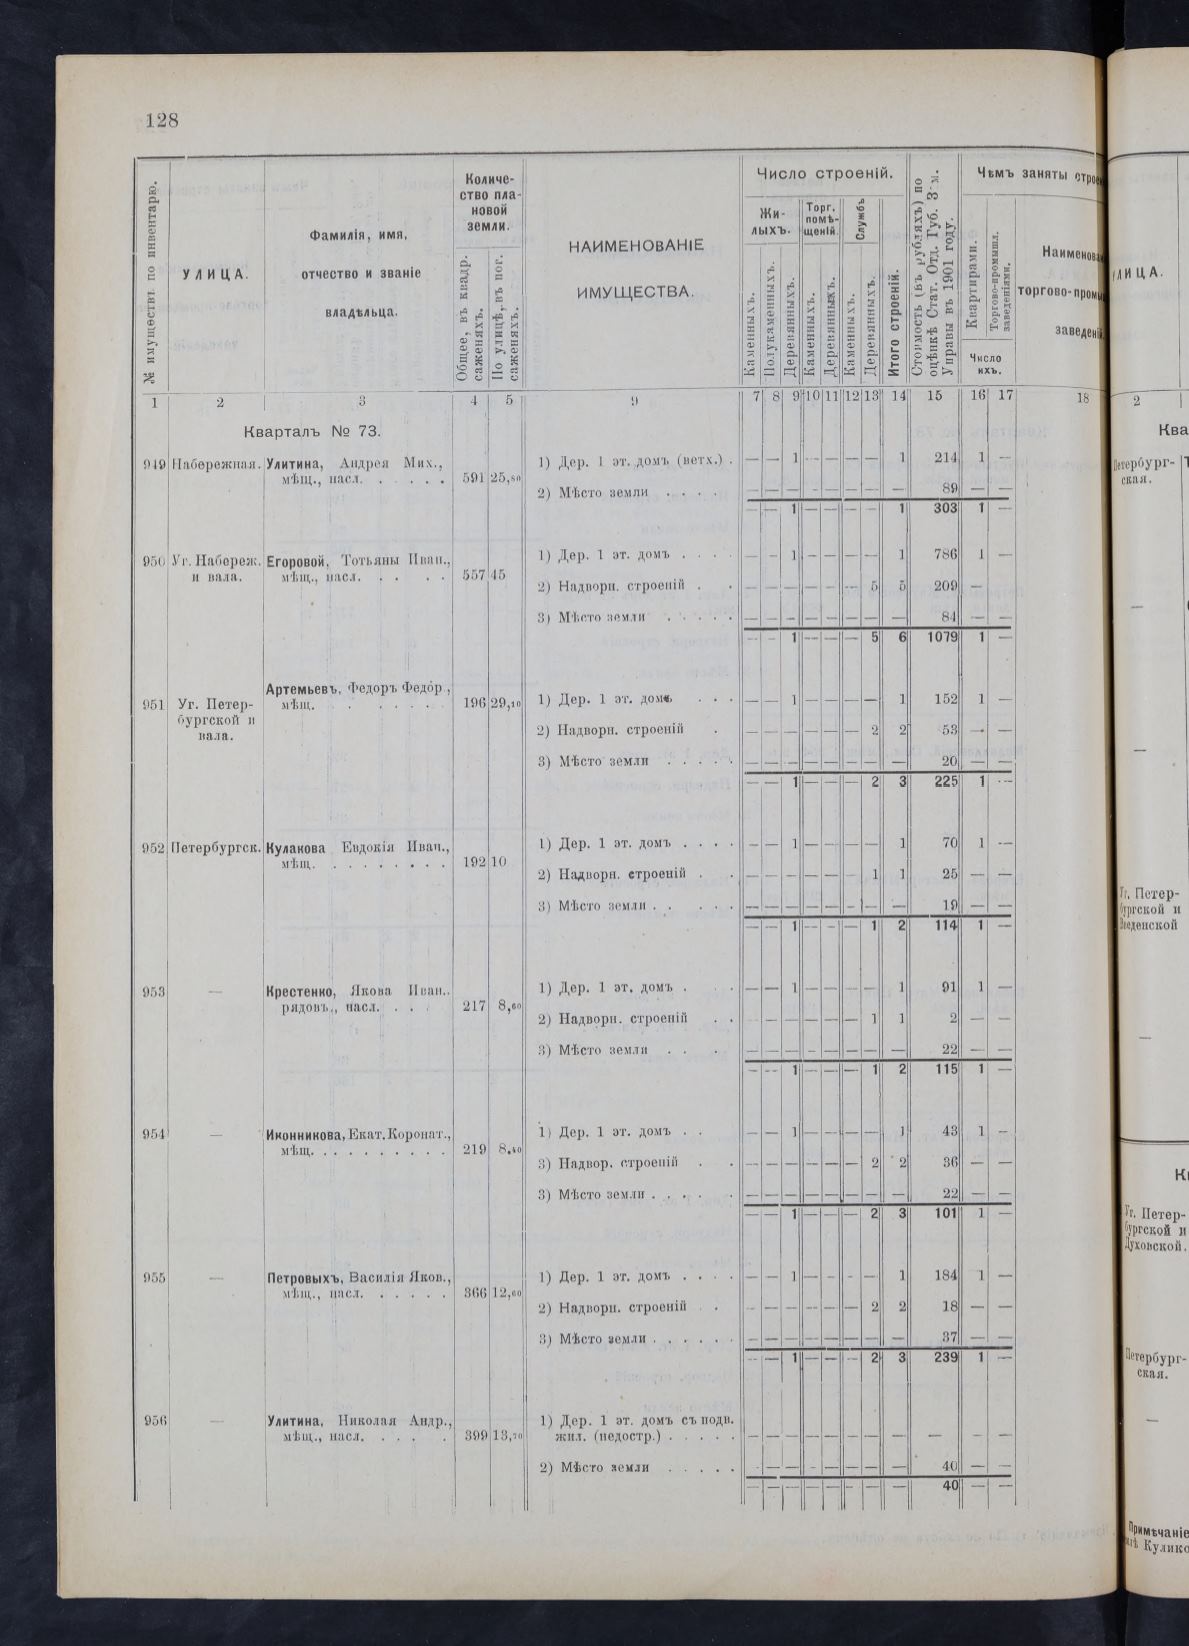 128
№ имуществъ по инвентарю.
УЛИЦА.
Фамилія, имя,
отчество и званіе
владѣльца.
Количе-
ство пла-
новой
земли.
Общее, въ квадр.
саженяхъ.
По улицѣ, въ пог.
саженяхъ.
НАИМЕНОВАНІЕ
ИМУЩЕСТВА.
Число строеній.
Жи-
лыхъ.
Торг.
помѣ-
щеній.
Службъ
Каменныхъ.
Полукаменныхъ.
Деревянныхъ.
Каменныхъ.
Деревянныхъ.
Каменныхъ.
Деревянныхъ.
Итого строеній.
Стоимость (въ рубляхъ) по
оцѣнкѣ Стат. Отд. Губ. Зем.
Управы въ 1901 году.
Чѣмъ заняты строе
Квартирами.
Торгово-промышл.
заведеніями.
Число
ихъ.
Наименова
торгово-промы
заведені
1 2 3 4 5 9 7 8 9 10 11 12 13 14 15 16 17 18
Кварталъ № 73.
949 Набережная. Улитина, Андрея Мих., 1) Дер. 1 эт. домъ (ветх.) . — — 1 — — — — 1 214 1 —
мѣщ., насл. . . . . . 591 25,80
2) Мѣсто земли . . . . — — — — — — — — 89 — —
— — 1 — — — — 1 303 1 —
950 Уг. Набереж. Егоровой, Тотьяны Иван., 1) Дер. 1 эт. домъ . . . . — — 1 — — — — 1 786 1 —
и вала. мѣщ., насл. . . . . 557 45
2) Надворн. строеній . . — — — — — — 5 5 209 —
3) Мѣсто земли . . . . . — — — — — — — — 84 — —
— — 1 — — — 5 6 1079 1 —
951 Уг. Петер- Артемьевъ, Федоръ Федор., 1) Дер. 1 эт. домъ . . . — — 1 — — — — 1 152 1 —
бургской и мѣщ. . . . . . . 196 29,10
вала.
2) Надворн. строеній . — — — — — — 2 2 53 — —
3) Мѣсто земли . . . . . — — — — — — — — 20 — —
— — 1 — — — 2 3 225 1 —
952 Петербургск. Кулакова Евдокія Иван., 1) Дер. 1 эт. домъ . . . . — — 1 — — — 1 70 1 —
мѣщ. . . . . . . . . 192 10
2) Надворн. строеній . . — — — — — — 1 1 25 — —
3) Мѣсто земли . . . . . — — — — — — — — 19 — —
— — 1 — — — 1 2 114 1 —
953 — Крестенко, Якова Иван., 1) Дер. 1 эт. домъ . . . — — 1 — — — — 1 91 1 —
рядовъ., насл. . . . 217 8,60
2) Надворн. строеній . . — — — — — — 1 1 2 — —
3) Мѣсто земли . . . — — — — — — — — 22 — —
— — 1 — — — 1 2 115 1 —
954 — Иконникова, Екат. Коронат., 1) Дер. 1 эт. домъ . . — — 1 — — — — 1 43 1 —
мѣщ. . . . . . . . . . 219 8,40
3) Надвор. строеній . . — — — — — — 2 2 36 — —
3) Мѣсто земли . . . . . — — — — — — — — 22 — —
— — 1 — — — 2 3 101 1 —
955 — Петровыхъ, Василія Яков., 1) Дер. 1 эт. домъ . . . . — — 1 — — — — 1 184 1 —
мѣщ., насл. . . . . . 366 12,60
2) Надворн. строеній . . — — — — — — 2 2 18 — —
3) Мѣсто земли . . . . . . — — — — — — — — 37 — —
— — 1 — — — 2 3 239 1 —
956 — Улитина, Николая Андр., 1) Дер. 1 эт. домъ съ подв.
мѣщ., насл. . . . . . 399 13,70 жил. (недостр.) . . . . . — — — — — — — — — — —
2) Мѣсто земли . . . . . — — — — — — — — 40 — —
— — — — — — — — 40 — —
ЛИЦА.
2
Ква
Петербург-
ская.
—
—
Уг. Петер-
бургской и
Введенской
—
К
Уг. Петер-
бургской и
Духовской.
Петербург-
ская.
—
Примѣчаніе
Кулико